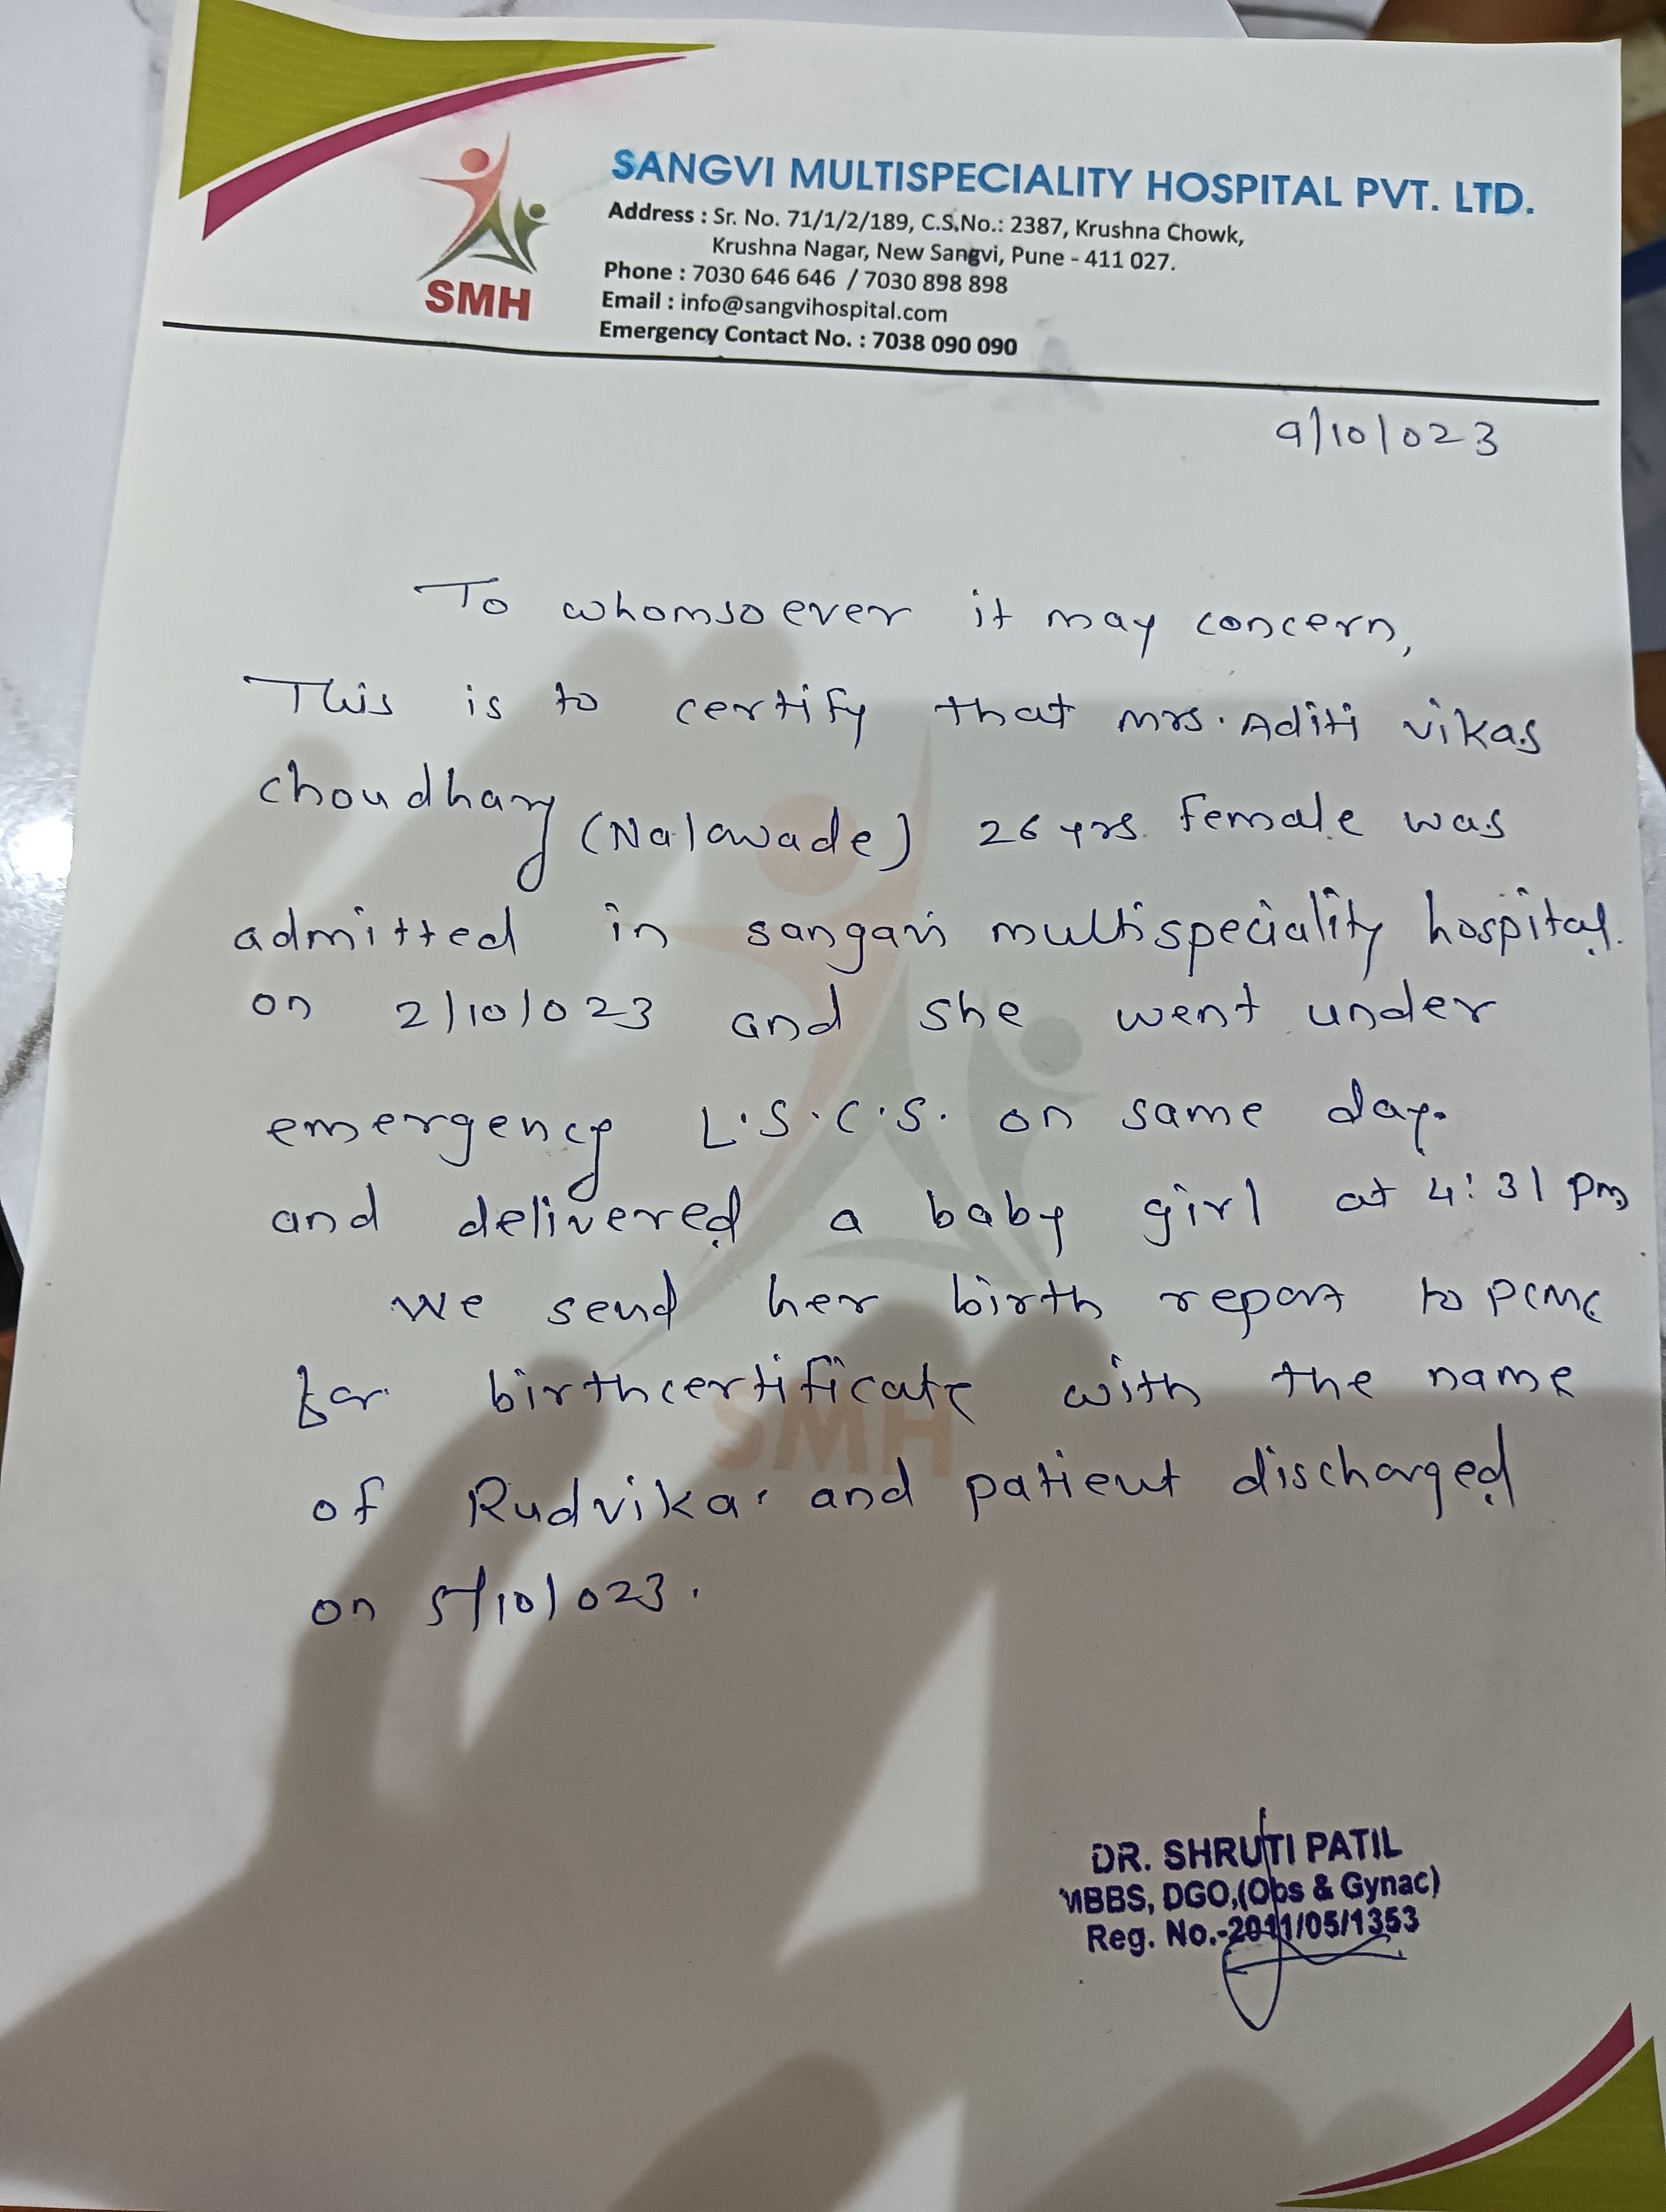 SANGVI MULTISPECIALITY HOSPITAL PVT. LTD.
Address : Sr. No. 71/1/2/189, C.S.No.: 2387, Krushna Chowk,
Krushna Nagar, New Sangvi, Pune - 411 027.
Phone : 7030 646 646 / 7030 898 898
Email : info@sangvihospital.com
Emergency Contact No. : 7038 090 090
SMH
9/10/023
To whomsoever it may concern,
This is to certify that Mrs. Aditi vikas
choudhary (Nalawade) 26 yrs. female was
admitted in sangavi multispeciality hospital.
on 2/10/023 and she went under
emergency L.S.C.S. on same day.
and delivered a baby girl at 4:31 pm
We send her birth report to PCMC
for birthcertificate with the name
of Rudvika. and patient discharged
on 5/10/023.
SMH
DR. SHRUTI PATIL
MBBS, DGO,(Obs & Gynac)
Reg. No.-2011/05/1353